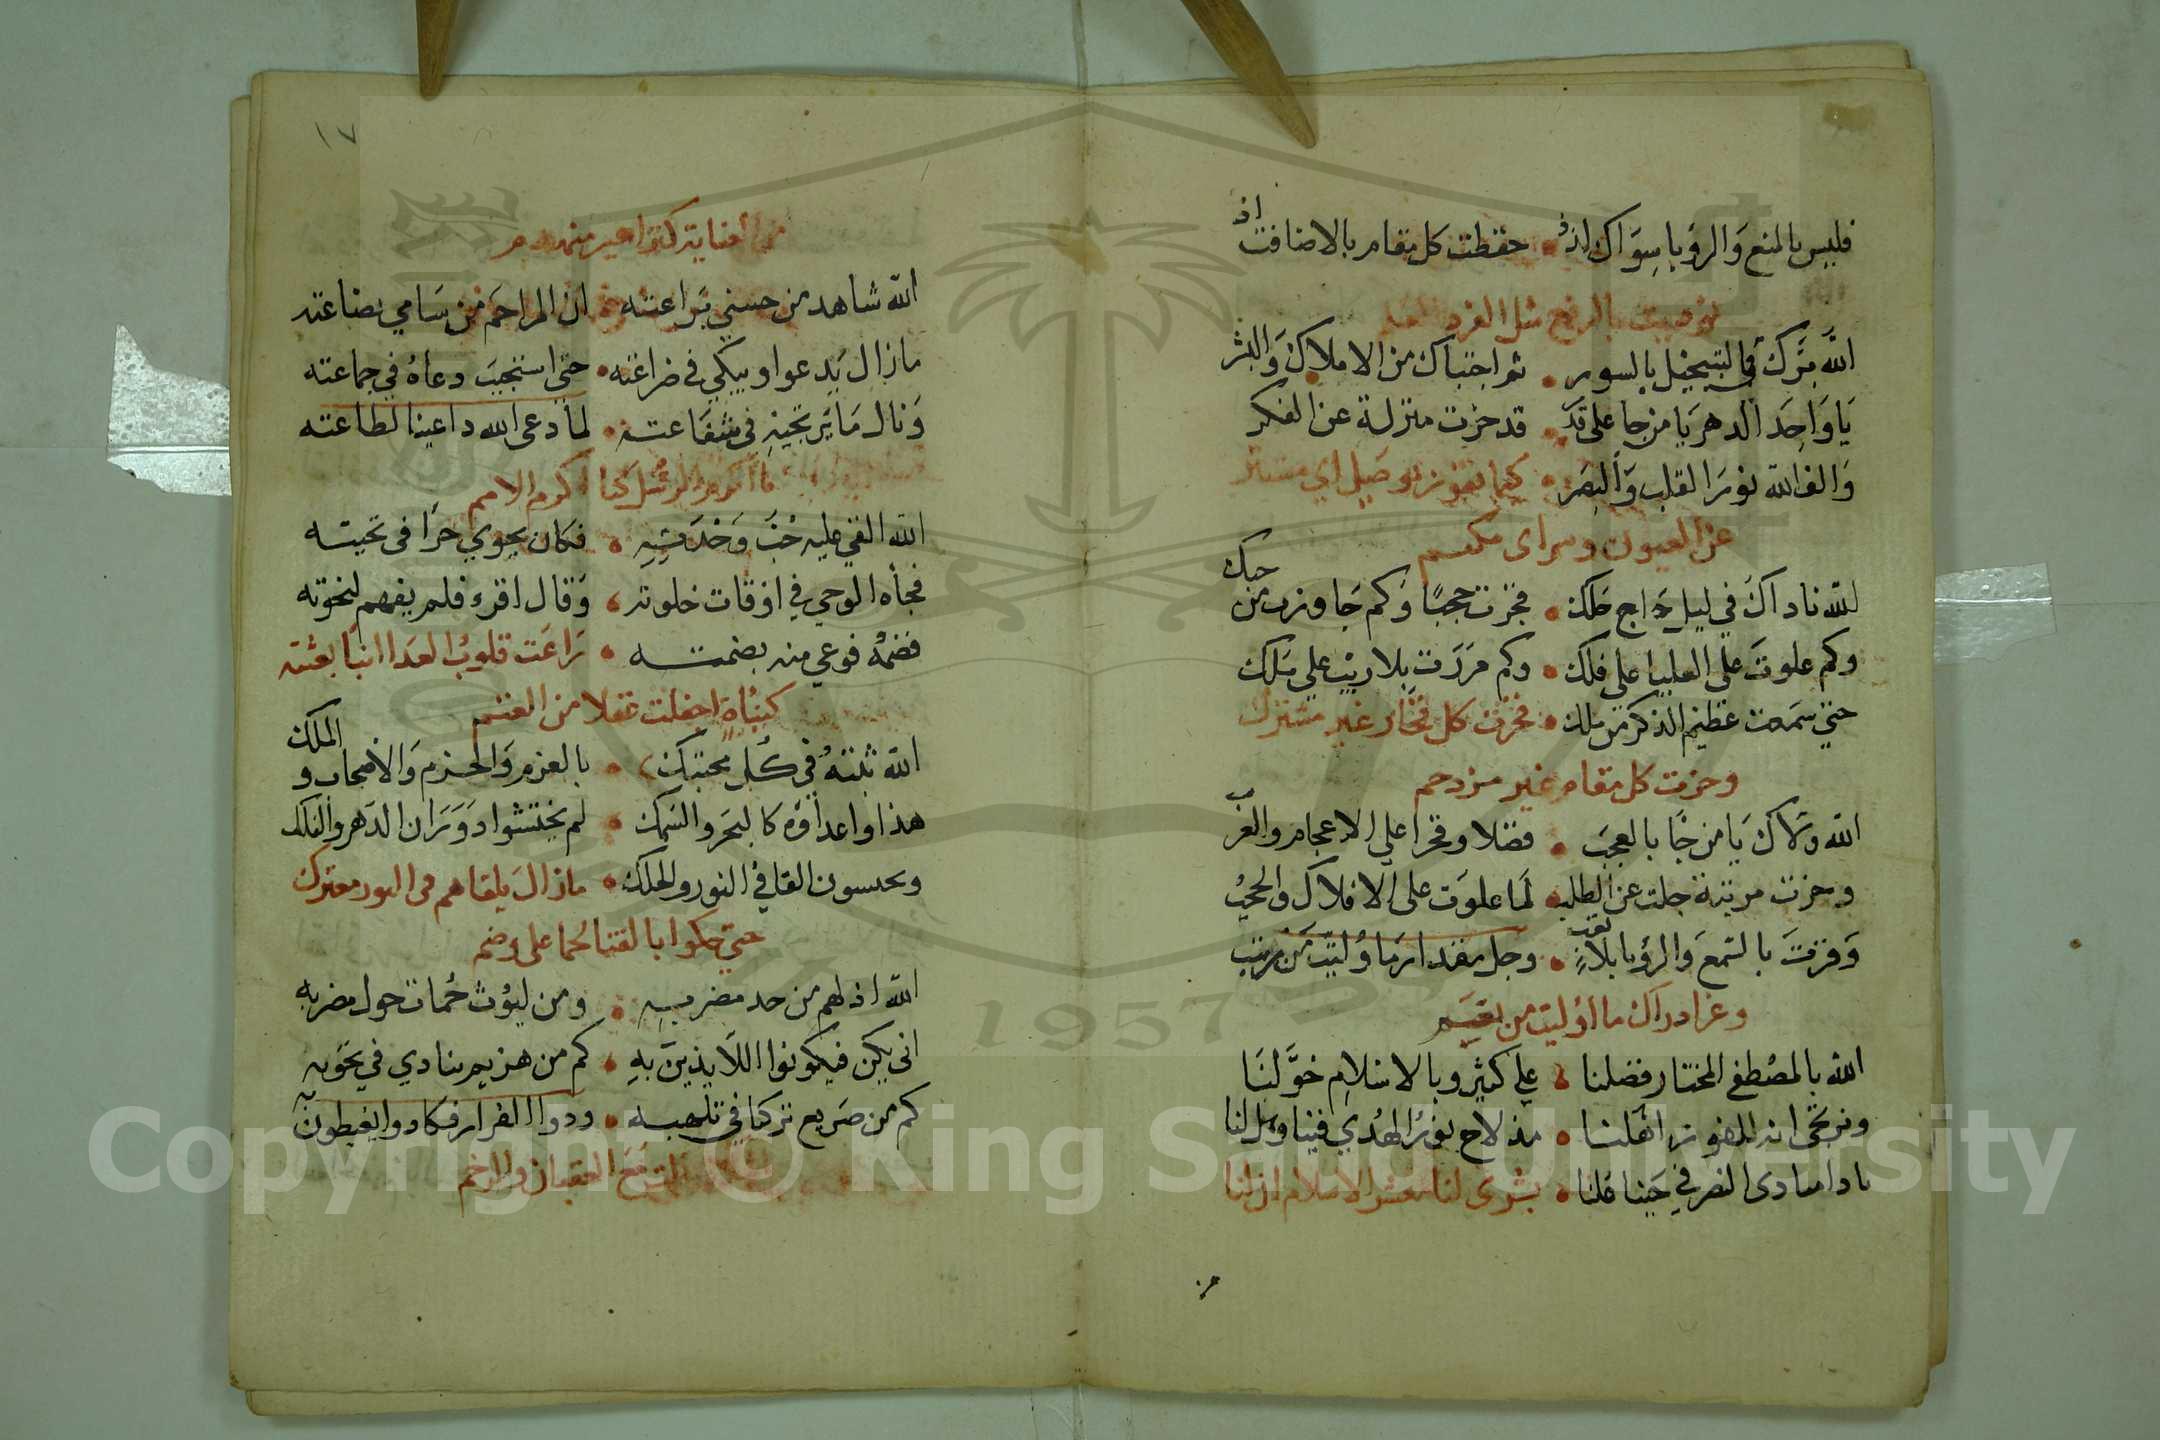 فليس بالمنع والرؤيا سواك اذ حفظت كل مقام بالاضافت اذ
نوديت بالرفع مثل المفرد العلم
الله برّك في التبجيل بالسور ثم اجتباك من الاملاك والبشر
يا واحد الدهر يا من جا على قدر قد حزت منزلة عن الفكر
والف الله نور القلب والبصر كيما تفوز بوصل اي مستتر
عن العيون وسراي مكتتم
لله ناداك في ليل داج حلك فجزت حجبا وكم جاوزت من حبك
وكم علوت على العليا على فلك وكم مررت بلا ريب علي ملك
حتي سمعت عظيم الذكر من ملك فحزت كل فخار غير مشترك
وحزت كل مقام غير مزدحم
الله ولاك يا من جا بالعجب فضلا وفخرا علي الاعجام والعرب
وحزت مرتبة جلت عن الطلب لما علوت على الافلاك والحجب
وفزت بالسمع والرؤيا بلا تعب وجل مقدار ما وليت من رتب
وعز ادراك ما اوليت من نعم
الله بالمصطفي المختار فضلنا علي كثير وبالاسلام خولنا
ونرتجي انه للفوز اهلنا مذ لاح نور الهدي فينا وسل لنا
نادا منادي النصر في حينا قلنا بشرى لنا معشر الاسلام ان لنا
من
١٧
من العناية ركنا غير منهدم
الله شاهد من حسني براعته ان المراحم من سامي بضاعته
مازال يدعوا ويبكي في ضراعته حتى استجيب دعاه في جماعته
ونال ما يرتجيه في شفاعته لما دعى الله داعينا لطاعته
باكرم الرسل كنا اكرم الامم
الله القي عليه حب وحدته فكان يحوي حرا في تحيته
فجأه الوحي في اوقات خلوته وقال اقرء فلم يفهم لنخوته
فضمه فوعي منه بضمته راعت قلوب العدا انبا بعثته
كنبأة اجفلت غفلا من الغنم
الله ثبته في كل محتبك بالعزم والحزم والاصحاب والملك
هذا واعداؤه كالبحر والسمك لم يختشوا دوران الدهر والفلك
ويحسون القا في النور والحلك مازال يلقاهم في كل معترك
حتي حكوا بالقنا لحما على وضم
الله اذلهم من حد مضربه ومن ليوث حمات حول مضربه
اني يكن فيكونوا اللايذين به كم من هزيم ينادي في تحوبه
كم من صريع تركنا في تلهبه ودوا الفرار فكادوا يغبطون به
الترفع العقبان والرخم
Copyright © King Saud University
1957